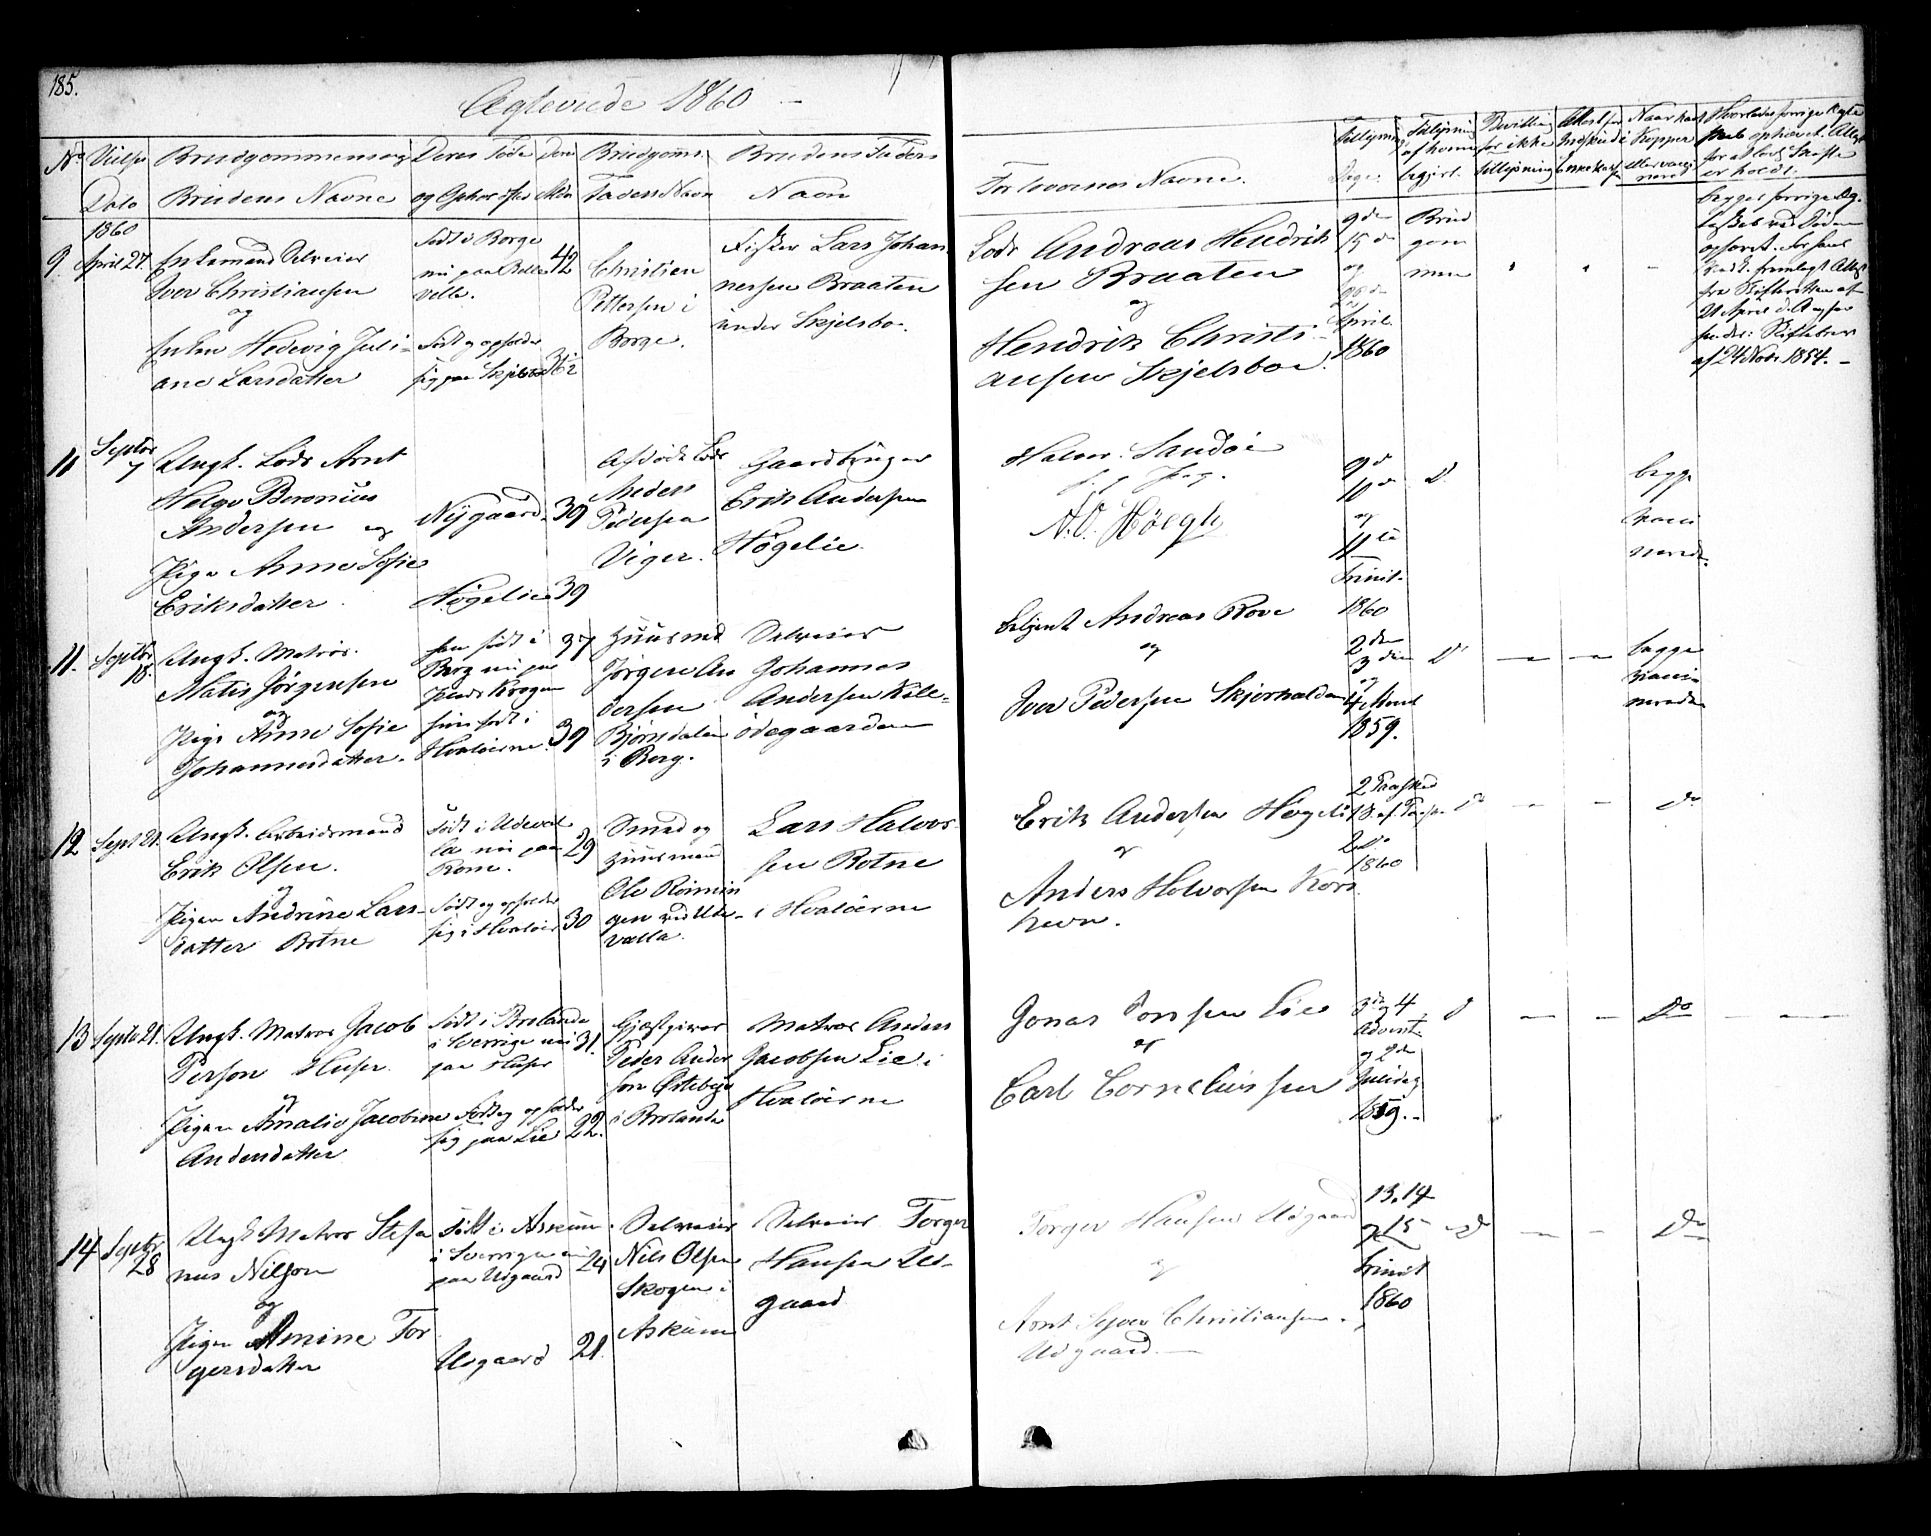 185.
Ægteviede 1860
No
Vielses
Dato
Brudgommens og
Brudens Navne
Deres Føde
og Opholdssted
Deres
Alder
Brudgoms
Faders Navn
Brudens Faders
Navn
Forlovernes Navne.
Tillysnings
Dage.
Tillysning
af hvem
begjert.
Bevilling
for ikke
tillysning
Attest for
Indskud i
Enkekasse
Naar havt
Kopper
eller vacci
neret
Hvorledes forrige Ægte
skab ophævet. Attest
for at lovl. Skifte
er holdt.
1860
9. April 27.
Enkemand Selveier
Iver Christiansen
og
Enken Hedevig Juli-
ane Larsdatter
Født i Borge
nu paa
42
Født og opholder
sig paa Skjelsbo
36½
Christian
Pettersen i
Borge.
Fisker Lars Johan
nersen Braaten
under Skjelsbo.
Lods Andreas Hendrik
sen Braaten
og
Hendrik Christi-
ansen Skjelsboe.
9de
15de
og
April
1860
Brud
gom
men
begges forrige Æg-
teskab ved Døden
ophævet. for hans
fremlagt Attest
fra Skifteretten af
21 April
af 24 Novbr. 1854.
11
Septbr
7
Ungk. Lods Arnt
Helge Beronius
Andersen og
Pige Anne Sofie
Eriksdatter.
Nygaard
39
Høgelie
39
Afdøde Lods
Anders
Pedersen
Viger.
Gaardbruger
Erik Andersen
Høgelie.
Halvor Sandøe
N.O. Høegh
9d
10de
og
11te
Trinit.
1860
Do
begge
vacci
nerede.
11. Septbr
18.
Ungk. Matros.
Matis Jørgensen
og
Pige Anne Sofie
Johannesdatter.
han født i
Berg nu paa
Krogen
37
hun født i
Hvaløerne.
39
Huusmd
Jørgen An
dersen
Bjørnsdalen
i Berg.
Selveier
Johannes
Andersen Kile-
ødegaarden
Andreas Rove
og
Iver Pedersen Skjærhalden
2den
3die
og
4 Advent
1859.
Do
begge
vacci-
nerede
12. Sept 21.
Ungk. Arbeidsmand
Erik Olsen.
og
Pigen Andrine Lars-
datter Botne
Født i Udeval
la nu paa
Rove.
29
Født og opholder
sig i Hvaløer
30
Smed og
Huusmand
Ole Röimin
gen ved Ude-
valla.
Lars Halvor-
sen Botne
i Hvaløerne
Erik Andersen Høgelie
og
Anders Halvorsen Kors
havn.
2 Paasked
1860
Do
Do
13 Septb 21.
Ungk. Matros Jacob
Person Huser.
og
Pigen Amalie Jacobine
Andersdatter
Født i Brolanda
i Sverrige nu
paa Huser
31.
Født og opholder
sig paa Lie
22.
Gjæstgiver
Peder Ander
son Østebye
i Brolanda
Matros Anders
Jacobsen Lie i
Hvaløerne
Jonas Torssen Lie
og
Carl Corneliussen
3die og 4
Advent.
og 2den
Juledag
1859.
Do
Do
14 Septbr
28
Ungk. Matros Stefa
nus Nilson
og
Pigen Amine Tor
gersdatter
Født i Askum
i Sverrige nu
paa Urgaard
24
Urgaard
21.
Selveier
Nils Olsen
Skogen i
Askum
Selveier Torger
Hansen Ur-
gaard
Torger Hansen Urgaard
og
Arnt Sejver Christiansen
Urgaard.
13. 14
og 15
Trinit
1860
Do
Do